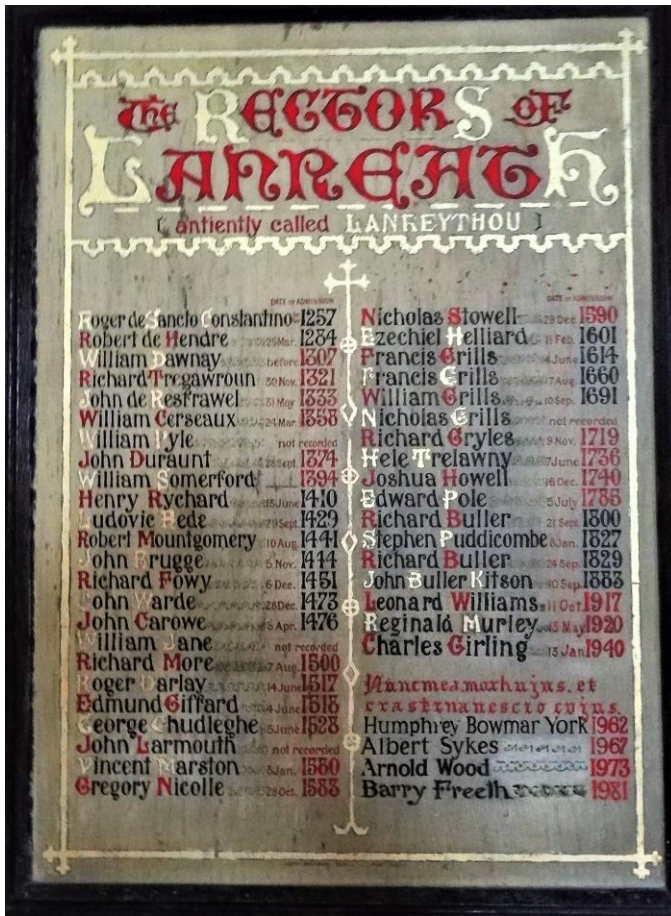 The Rectors of
Lanreath
[ antiently called LANREYTHOU ]
DATE OF ADMISSION
Roger de Sancto Constantino 1257
Robert de Hendre 25 Mar. 1284
William Dawnay before 1307
Richard Tregawroun 30 Nov. 1321
John de Restrawel 31 May 1333
William Cerseaux 24 Mar 1358
William Pyle not recorded
John Duraunt 28 Sept. 1374
William Somerford 1394
Henry Rychard 15 June 1410
Ludovic Rede 29 Sept. 1429
Robert Mountgomery 10 Aug. 1441
John Brugge 5 Nov. 1444
Richard Fowy 6 Dec. 1451
John Warde 28 Dec. 1473
John Carowe 6 Apr. 1476
William Jane not recorded
Richard More 7 Aug. 1500
Roger Darlay 14 June 1517
Edmund Giffard 4 June 1518
George Chudleghe 5 June 1528
John Larmouth not recorded
Vincent Marston 8 Jan. 1580
Gregory Nicolle 28 Oct. 1583
DATE OF ADMISSION
Nicholas Stowell 29 Dec. 1590
Ezechiel Helliard 11 Feb. 1601
Francis Grills 4 June 1614
Francis Grills 7 Aug. 1660
William Grills 10 Sep. 1691
Nicholas Grills not recorded
Richard Gryles 9 Nov. 1719
Hele Trelawny 7 June 1736
Joshua Howell 16 Dec. 1740
Edward Pole 5 July 1785
Richard Buller 21 Sept. 1800
Stephen Puddicombe 8 Jan. 1827
Richard Buller 24 Sep. 1829
John Buller Kitson 10 Sep. 1883
Leonard Williams 11 Oct. 1917
Reginald Murley 13 May 1920
Charles Girling 13 Jan 1940
Nunc mea mox hujus, et
crastina nescio cujus.
Humphrey Bowmar York 1962
Albert Sykes 1967
Arnold Wood 1973
Barry Freeth 1981